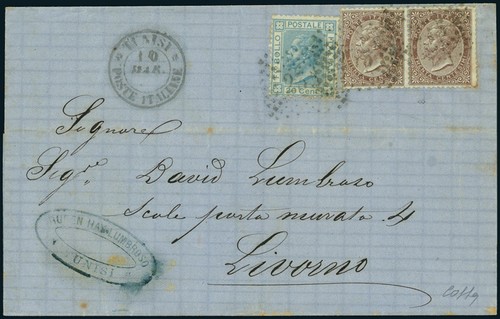 TUNISI
10
MAR.
POSTE ITALIANE
POSTALE
BOLLO
20 Cent
Signore
Sigre David Lumbroso
Scale porta murata 4
Livorno
RUBEN HAY LUMBROSO
TUNISI